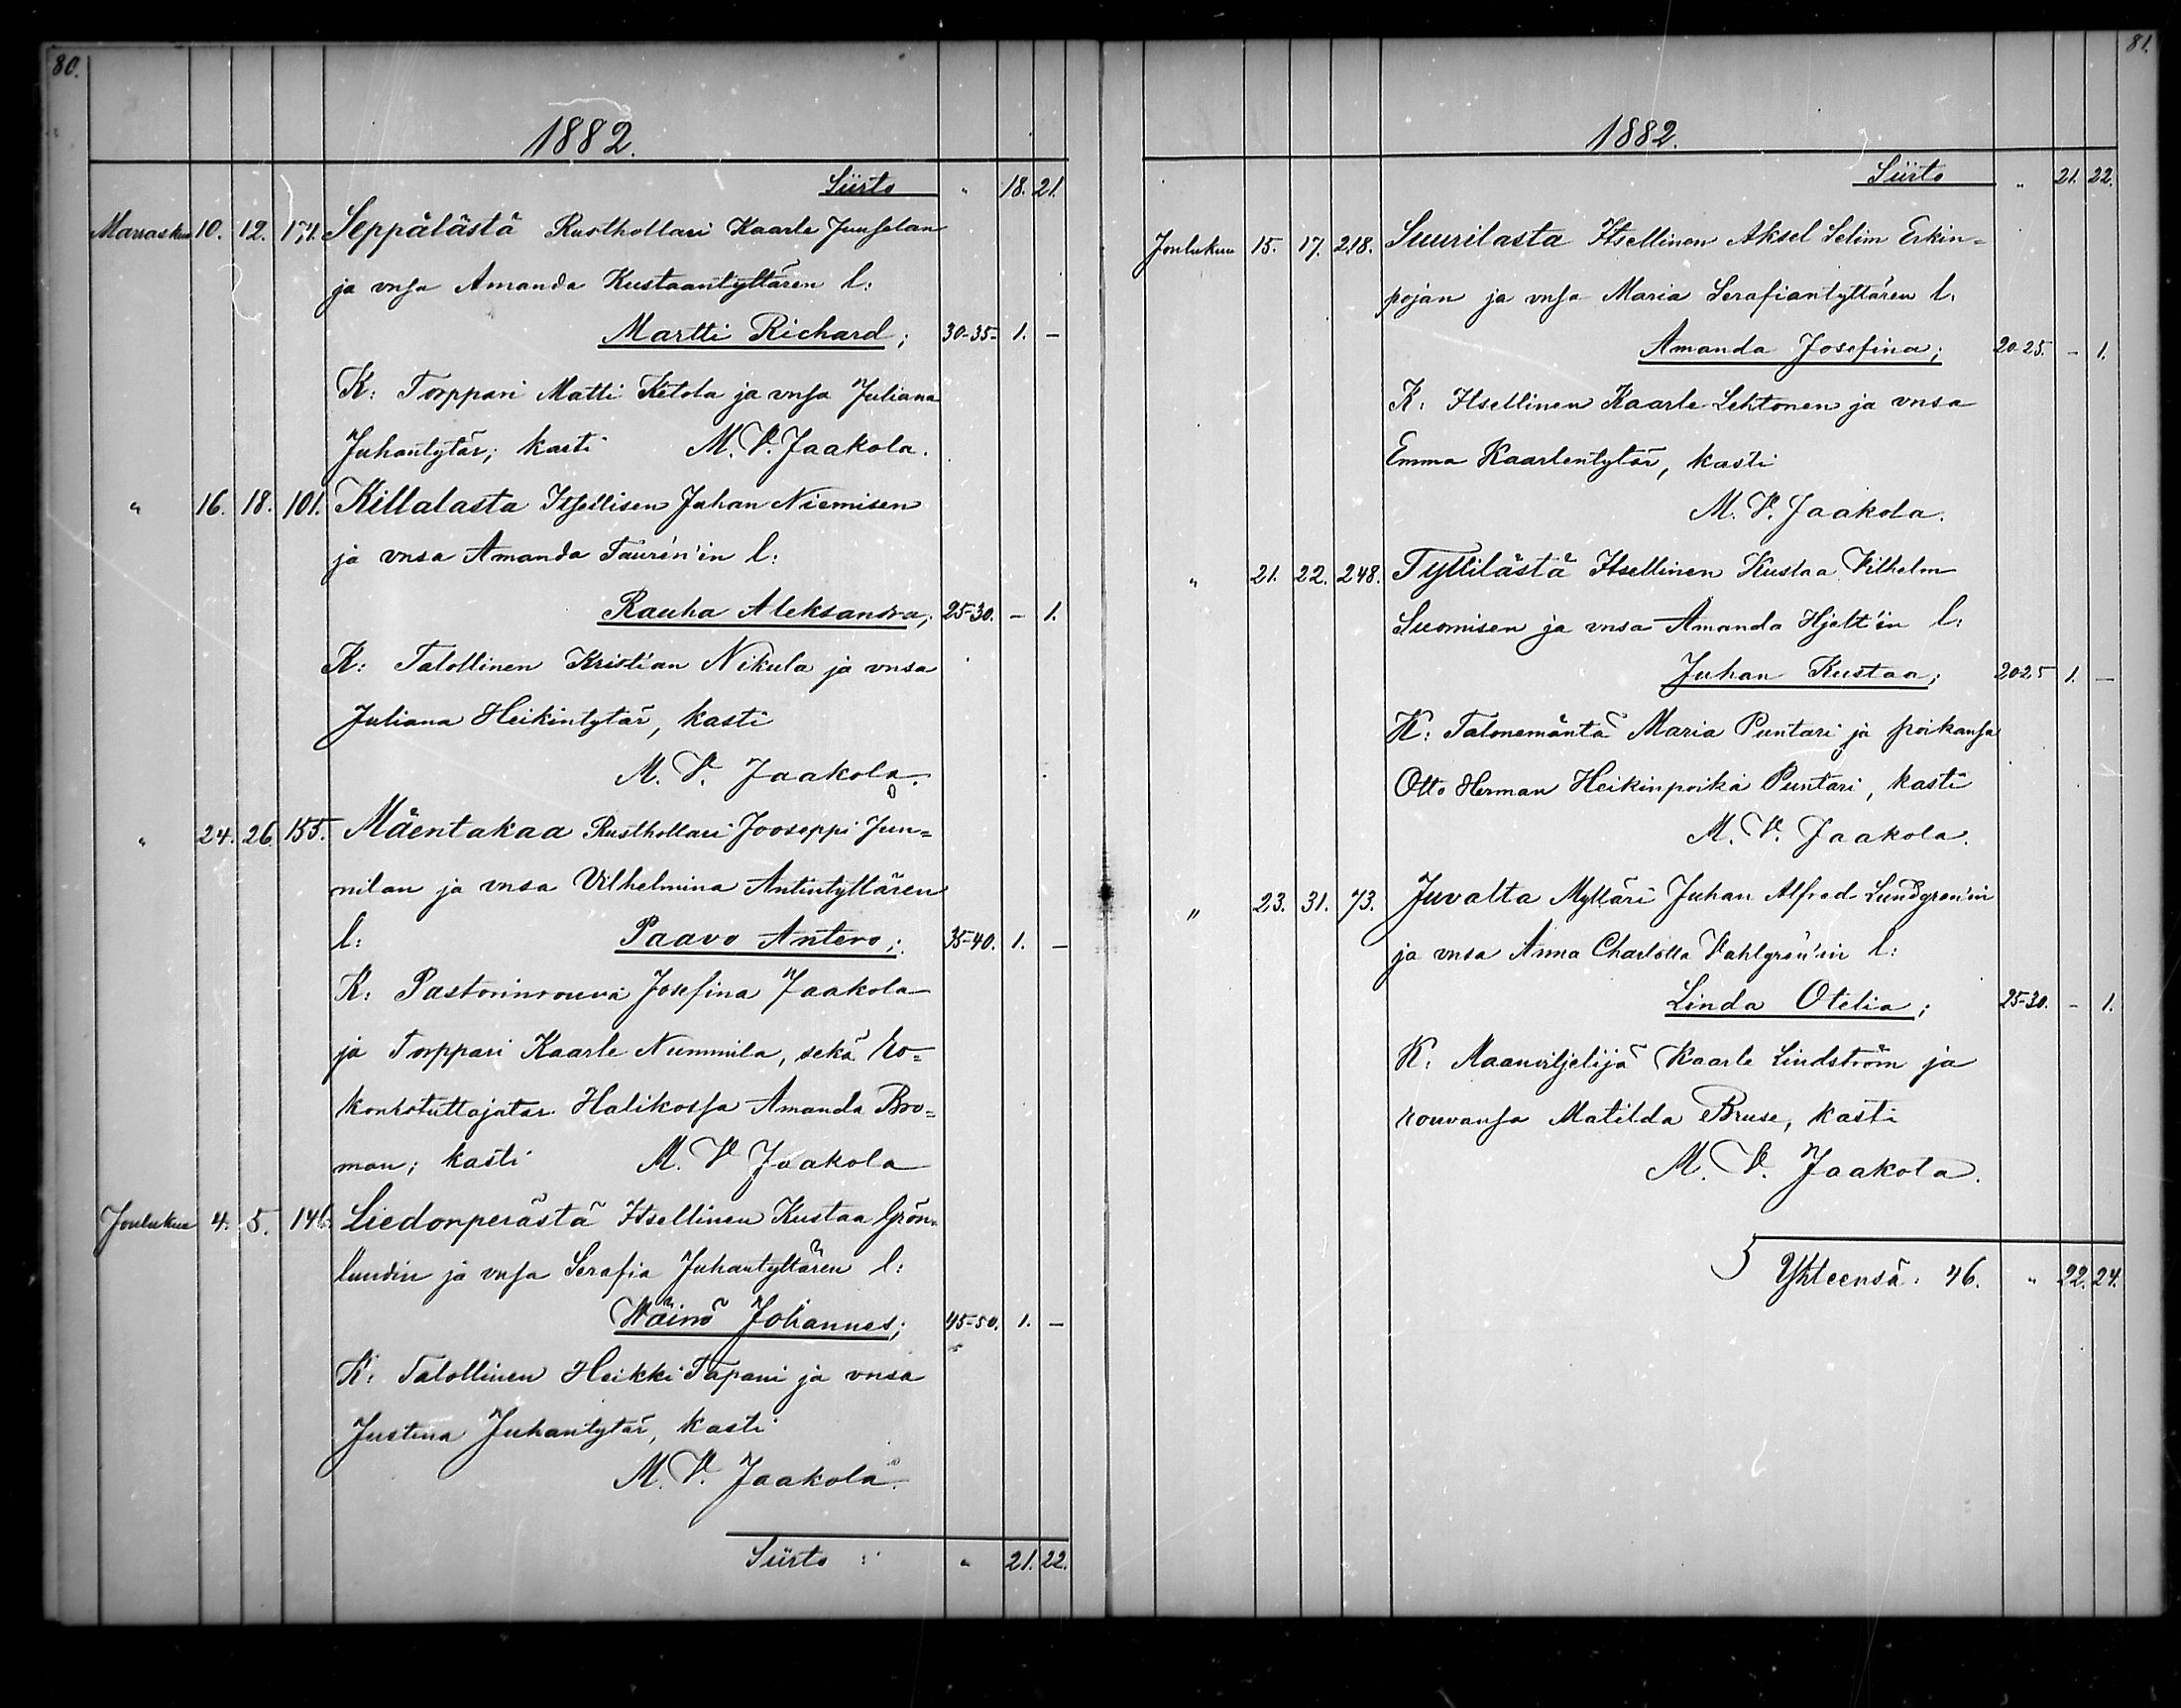 80.
1882.
Siirto " 18. 21.
Marrasku 10. 12. 171. Seppälästä Rusthollari Kaarle Junselan
ja vnsa Amanda Kustaantyttären l:
Martti Richard; 30-35- 1. —
K: Torppari Matti Ketola ja vnsa Juliana
Juhantytär; kasti M. V. Jaakola.
" 16. 18. 101. Killalasta Itsellisen Juhan Niemisen
ja vnsa Amanda Taurén'in l:
Rauha Aleksandra; 25-30. — 1.
K: Talollinen Kristian Nikula ja vnsa
Juliana Heikintytär, kasti
M. V. Jaakola.
" 24. 26. 155. Mäentakaa Rusthollari Jooseppi Jun=
nilan ja vnsa Vilhelmina Antintyttären
l: Paavo Antero; 35-40. 1. —
K: Pastorinrouva Josefina Jaakola
ja Torppari Kaarle Nummila, sekä Ro=
konistuttajatar Halikossa Amanda Bro=
man; kasti M. V. Jaakola
Joulukuu 4. 5. 146. Liedonperästä Itsellinen Kustaa Grön=
lundin ja vnsa Serafia Juhantyttären l:
Wäinö Johannes; 45-50. 1. —
K: Talollinen Heikki Tapani ja vnsa
Justina Juhantytär, kasti
M. V. Jaakola.
Siirto : " 21. 22.
81.
1882.
Siirto " 21. 22.
Joulukuu 15. 17. 218. Suurilasta Itsellinen Aksel Selim Erkin=
pojan ja vnsa Maria Serafiantyttären l:
Amanda Josefina; 20-25. — 1.
K: Itsellinen Kaarle Lehtonen ja vnsa
Emma Kaarlentytär, kasti
M. V. Jaakola.
" 21. 22. 248. Tyllilästä Itsellinen Kustaa Vilhelm
Suomisen ja vnsa Amanda Hjelt'in l:
Juhan Kustaa; 20-25 1. —
K: Talonemäntä Maria Puntari ja poikansa
Otto Herman Heikinpoika Puntari, kasti
M. V. Jaakola.
" 23. 31. 73. Juvalta Mylläri Juhan Alfred Lundgren'in
ja vnsa Anna Charlotta Vahlgrén'in l:
Linda Otelia; 25-30. — 1.
K: Maanviljelijä Kaarle Lindström ja
rouvansa Matilda Bruse, kasti
M. V. Jaakola.
Yhteensä: 46. " 22. 24.